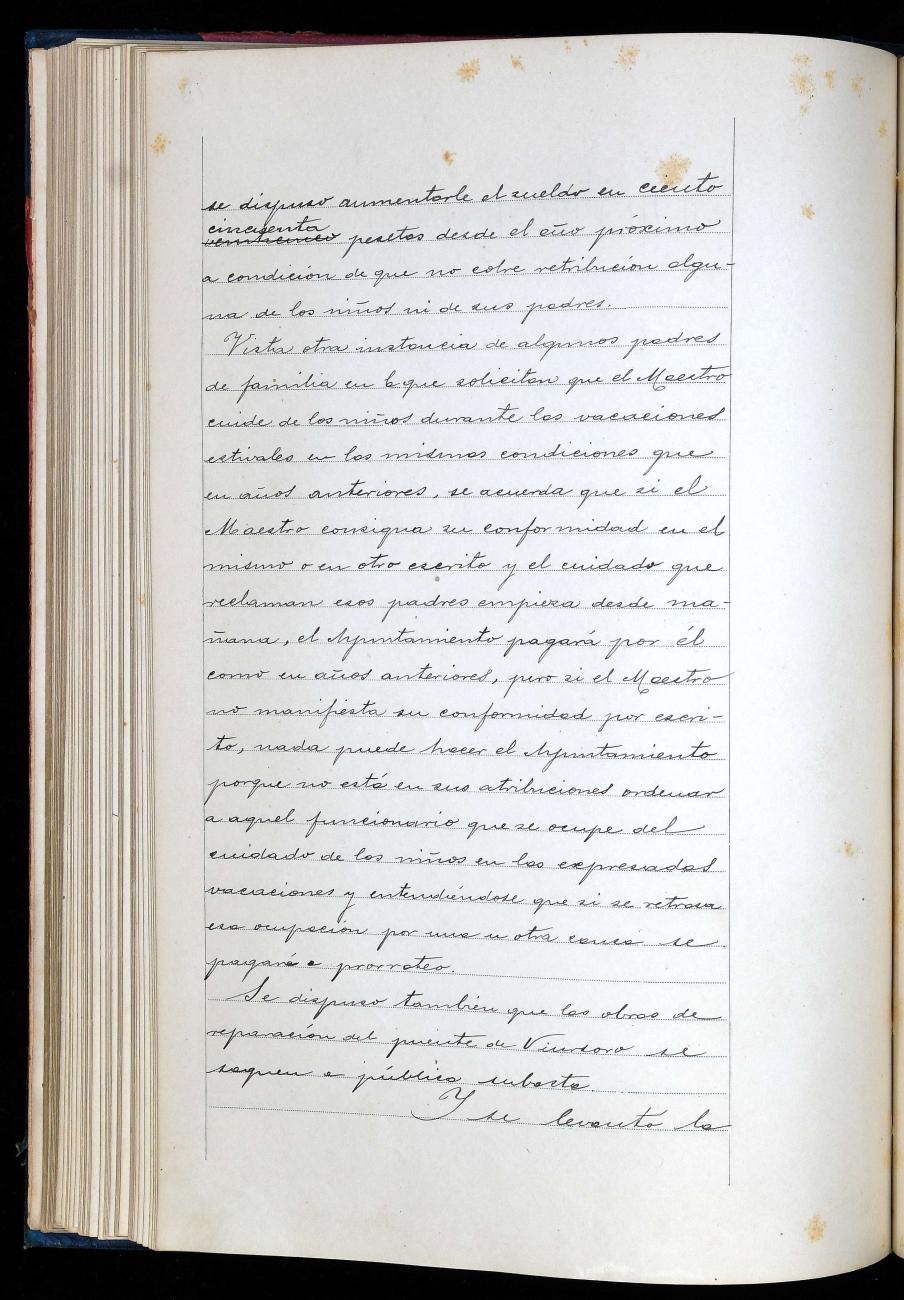 se dispuso aumentarle el sueldo en ciento
cincuenta
veinticinco pesetas desde el año próximo
a condición de que no cobre retribución algu-
na de los niños ni de sus padres.
Vista otra instancia de algunos padres
de familia en la que solicitan que el Maestro
cuide de los niños durante las vacaciones
estivales en las mismas condiciones que
en años anteriores, se acuerda que si el
Maestro consigna su conformidad en el
mismo o en otro escrito y el cuidado que
reclaman esos padres empieza desde ma-
ñana, el Ayuntamiento pagará por él
como en años anteriores, pero si el Maestro
no manifiesta su conformidad por escri-
to, nada puede hacer el Ayuntamiento
porque no está en sus atribuciones ordenar
a aquel funcionario que se ocupe del
cuidado de los niños en las expresadas
vacaciones y entendiéndose que si se retrasa
esa ocupación por una u otra causa se
pagará a prorrateo.
Se dispuso también que las obras de
reparación del puente de se
saquen a pública subasta.
Y se levantó la